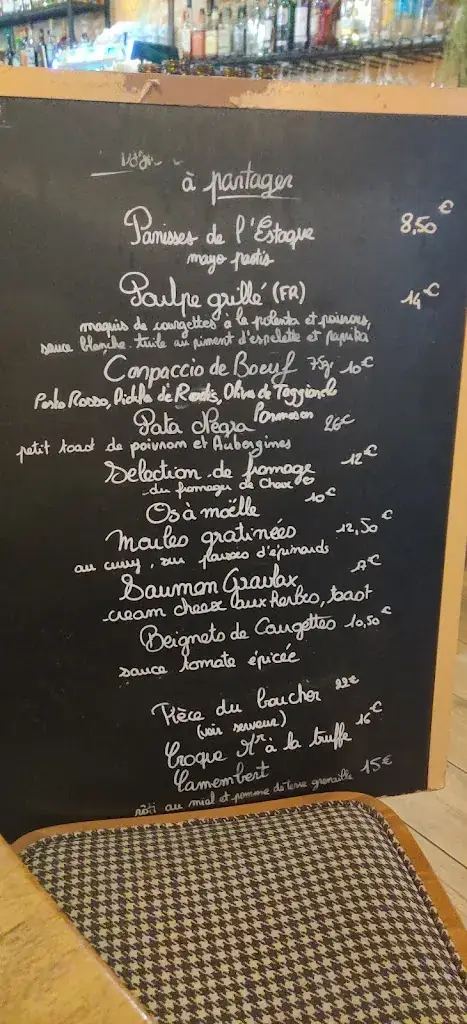 à partager
Panisses de l'Estaque 8,50 €
mayo pastis
Poulpe grillé (FR) 14 €
maquis de courgettes à la polenta et poivrons,
sauce blanche, tuile au piment d'espelette et paprika
Carpaccio de Boeuf 75g. 10 €
Pesto Rosso, Pickles de Radis, Olive de Taggiasche
Parmesan
Pata Negra 26€
petit toast de poivrom et Aubergines
Sélection de fromage 12 €
du fromager de Choux
Os à moëlle 10 €
Moules gratinées 12,50 €
au curry, sur pousses d'épinards
Saumon Gravlax €
cream cheese aux herbes, toast
Beignets de Courgettes 10,50 €
sauce tomate épicée
Pièce du boucher 22€
(voir serveur)
Croque Mr à la truffe 16 €
Camembert 15€
rôti au miel et pomme de terre grenaille